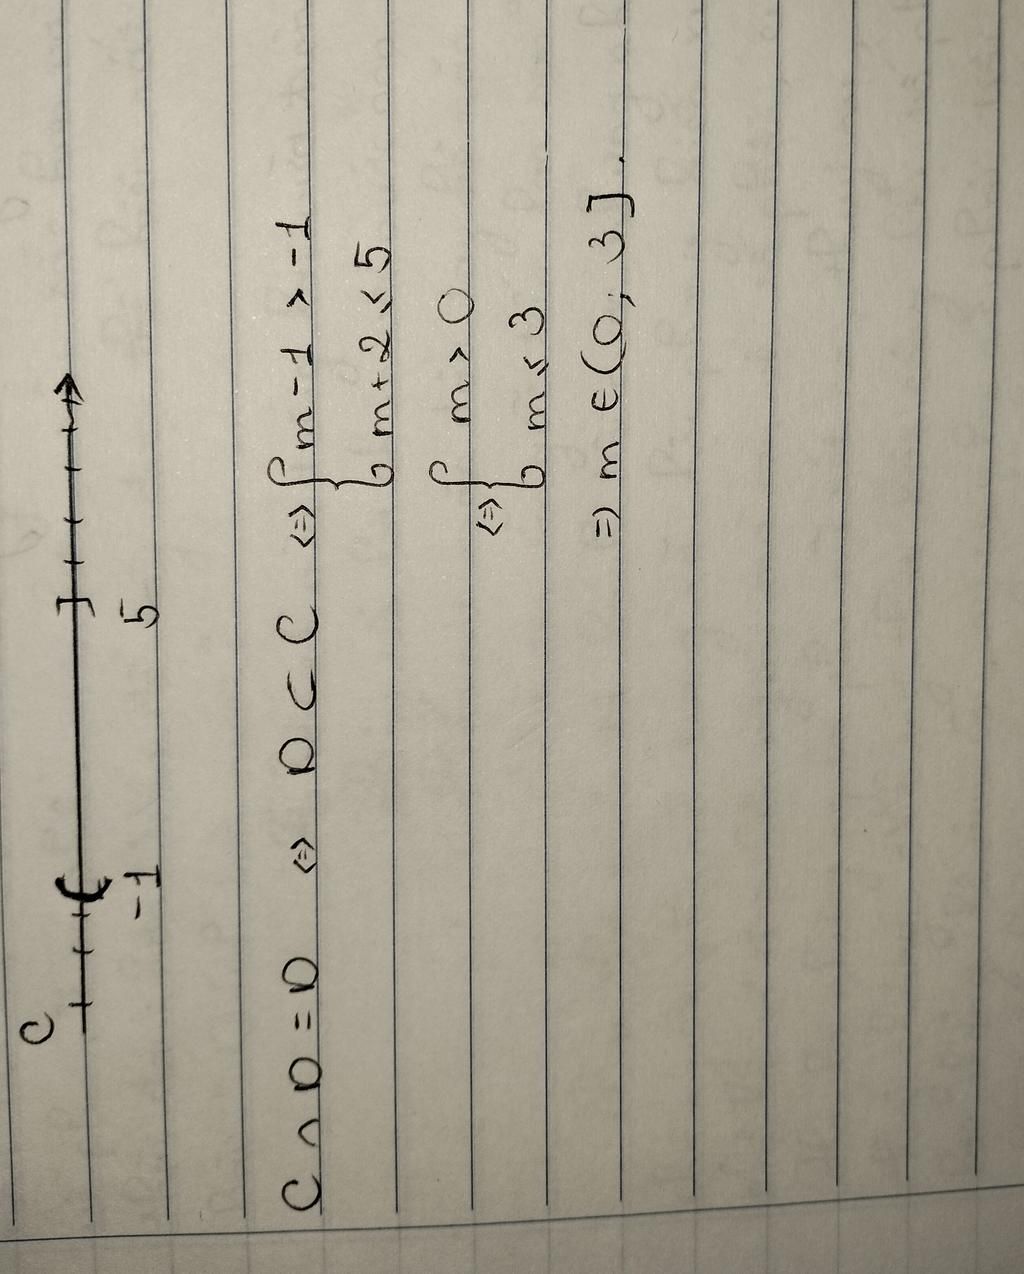 C
( ]
-1 5
C ∩ D = D ⇔ D ⊂ C ⇔ { m - 1 > -1
m + 2 ≤ 5
⇔ { m > 0
m ≤ 3
⇒ m ∈ (0; 3].